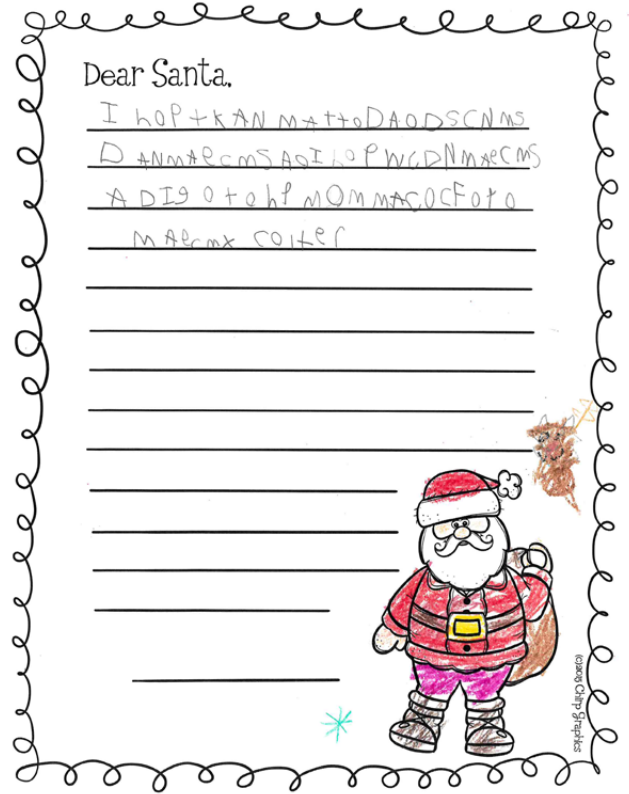 Dear Santa,
I hOP tKAN MAttODAODSCNMS
D ANMAeCMSAOI hOPWCDNMAeCMS
A DI9 OtOhP MOMMACOCFOtO
MAeCMX COlter
(c)2015 Chirp Graphics